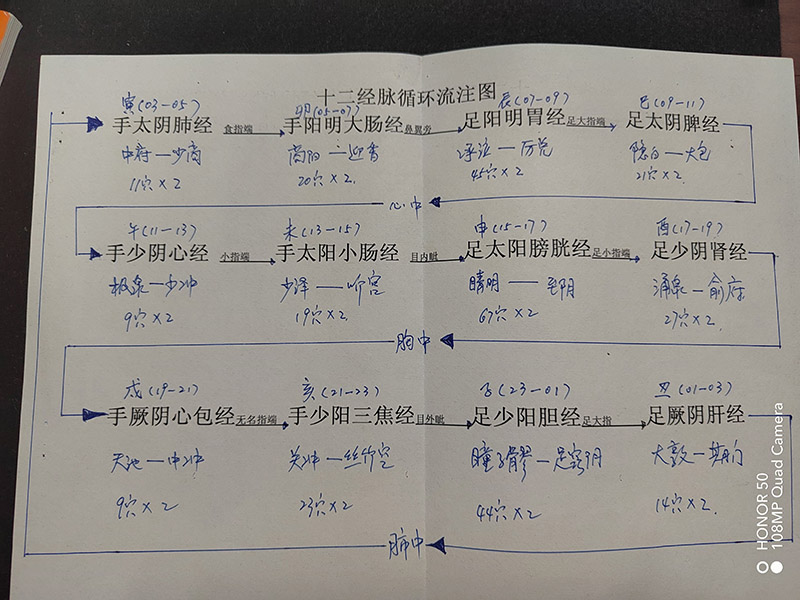 十二经脉循环流注图
寅(03-05) 卯(05-07) 辰(07-09) 巳(09-11)
手太阴肺经 食指端 手阳明大肠经 鼻翼旁 足阳明胃经 足大指端 足太阴脾经
中府—少商 商阳—迎香 承泣—厉兑 隐白—大包
11穴×2 20穴×2. 45穴×2 21穴×2.
心中
午(11-13) 未(13-15) 申(15-17) 酉(17-19)
手少阴心经 小指端 手太阳小肠经 目内眦 足太阳膀胱经 足小指端 足少阴肾经
极泉—少冲 少泽—听宫 睛明—至阴 涌泉—俞府
9穴×2 19穴×2. 67穴×2 27穴×2.
胸中
戌(19-21) 亥(21-23) 子(23-01) 丑(01-03)
手厥阴心包经 无名指端 手少阳三焦经 目外眦 足少阳胆经 足大指 足厥阴肝经
天池—中冲 关冲—丝竹空 瞳子髎—足窍阴 大敦—期门
9穴×2 23穴×2 44穴×2 14穴×2.
肺中
HONOR 50
108MP Quad Camera